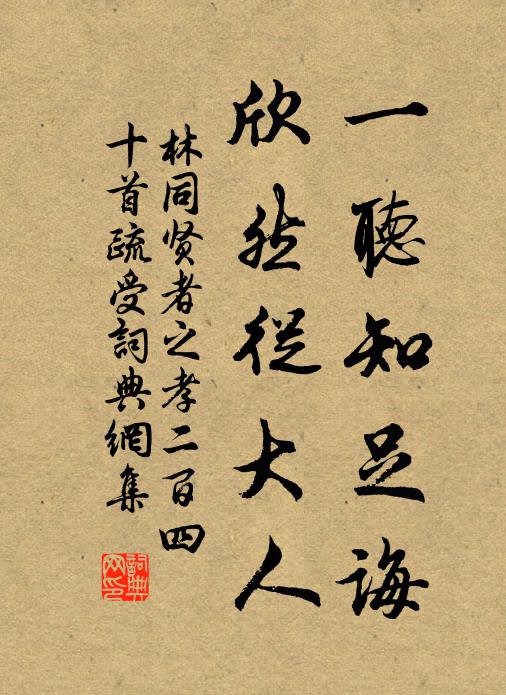 一聽知足誨
欣然從大人
林同贤者之孝二百四
十首疏受詞典網集
詞典网印